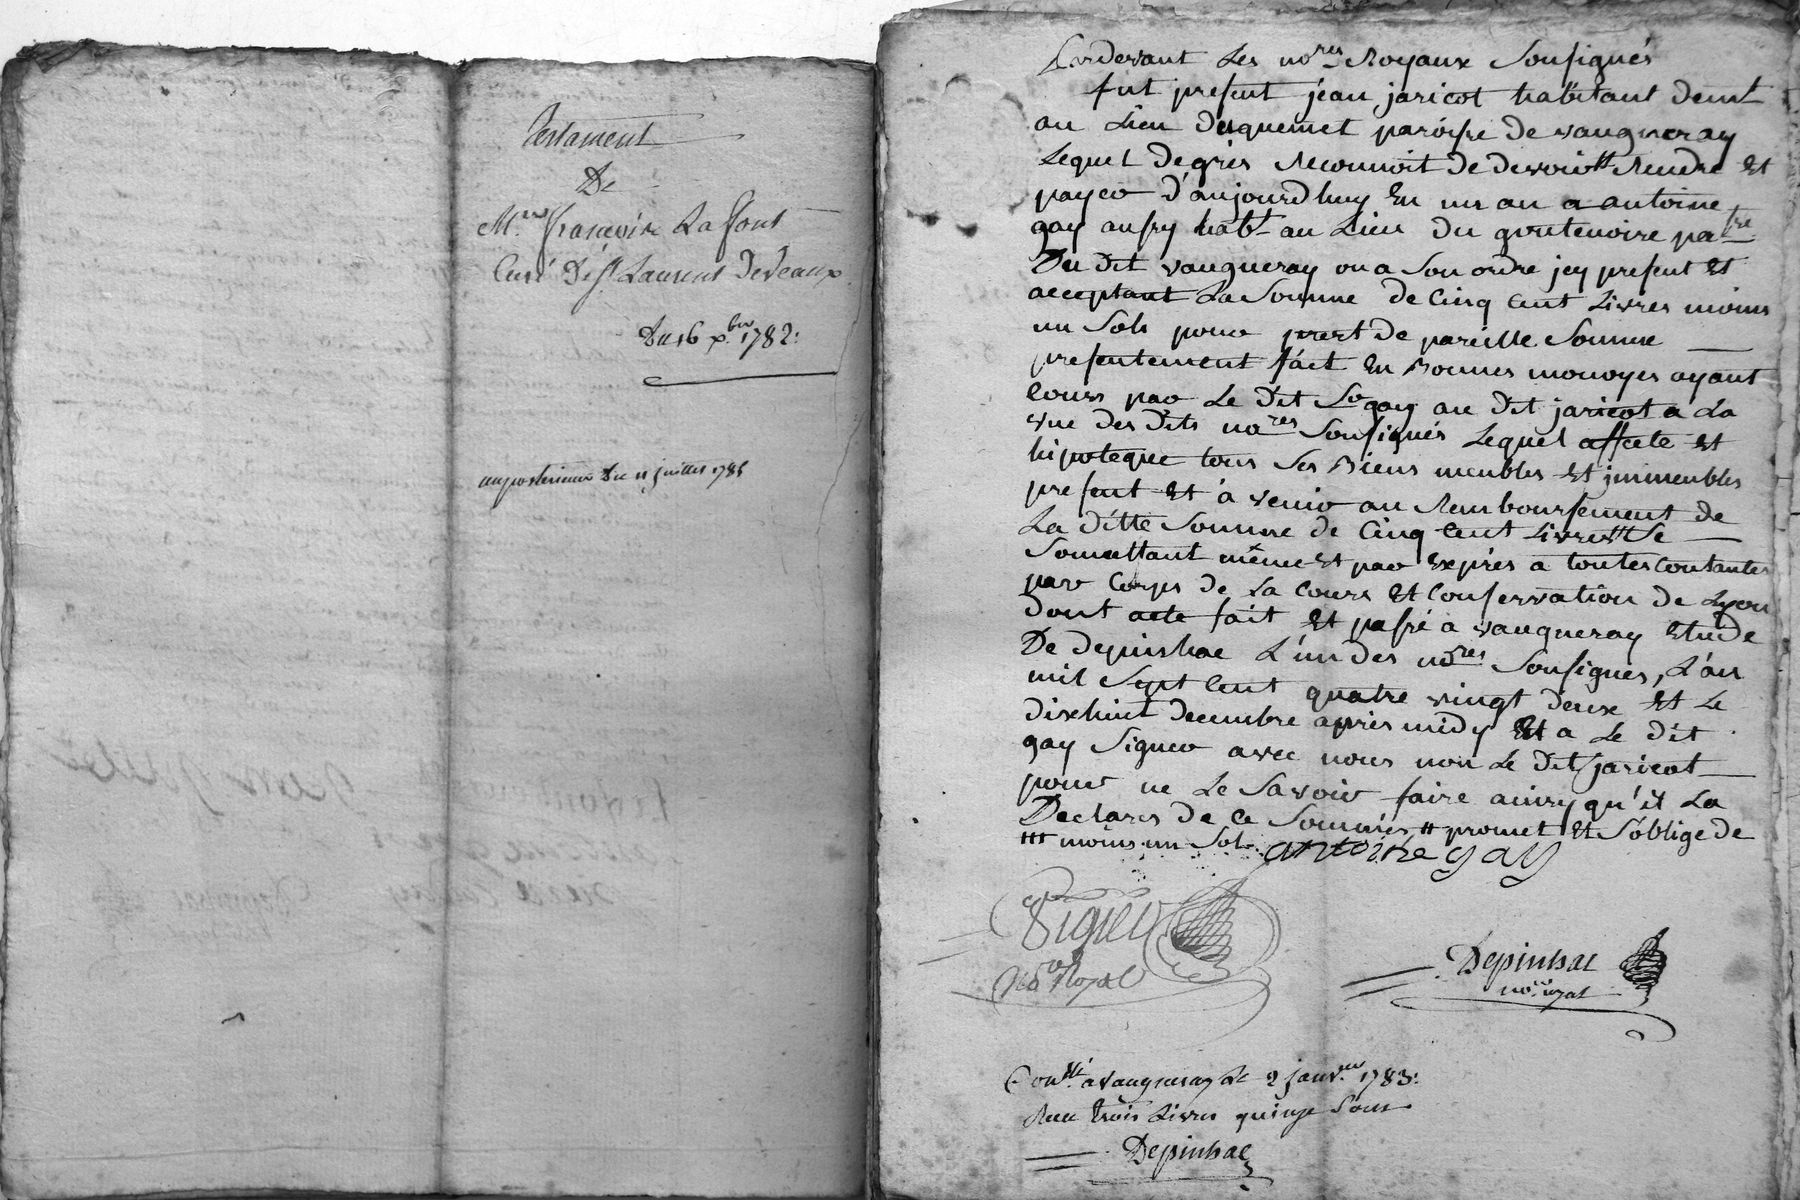 Testament
De
Mre françois Laffont
Curé De st Laurent De Veaux
Du 16 xbre 1782:
un posterieur Du 11 juillet 1785
Pardevant Les nores Royaux Sousignés
fut present jéan jaricot habitant demt
au Lieu paroisse de vaugneray
Lequel de grés Reconnoit de devoir # Rendre Et
payer d'aujourdhuy En un an a antoine
gay aussy habt au Lieu Du goutenoire pasre
Du Dit vaugneray ou a Son ordre jcy present Et
acceptant La Somme de Cinq Cent Livres moins
un Sols pour prest de pareille Somme
presentement fait En Bonnes monoyes ayant
Cours par Le Dit Sr gay au Dit jaricot a La
vue des Dits nores Sousignés Lequel affecte Et
hipoteque tous Ses Biens meubles Et jmmeubles
present Et à venir au Remboursement de
La ditte Somme de Cinq Cent Livres ttt Se
Soumettant même Et par Exprés a toutes Contantes
par Corps de La Cours Et Conservation de Lyon
dont acte fait Et passé a vaugneray Etude
De depinhac L'un des nores Sousignés, L'an
mil Sept Cent quatre vingt deux Et Le
dixhuit decembre aprés midy Et a Le dit
gay Signer avec nous non Le Dit jaricot
pour ne Le Savoir faire ainsy qu'il La
Declarés de Ce Sommés # promet Et S'oblige de
ttt moins un Sol antoine gay
Viguer
No Royal
Depinhac
nore royal
Conllé à Vaugneray Le 2 janver 1783:
Reçu trois Livres quinze Sous
Depinhac